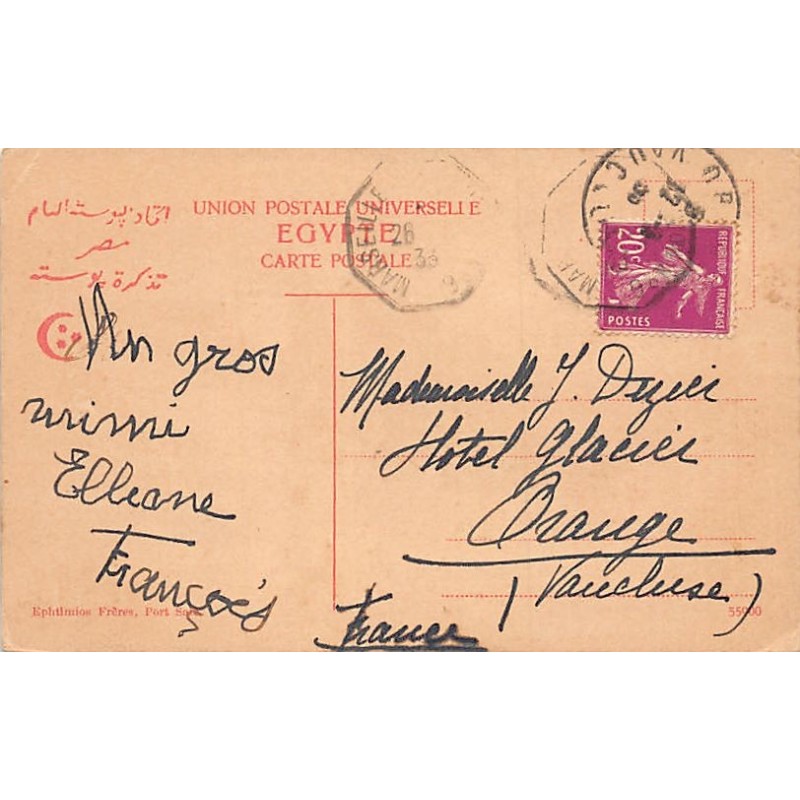 اتحاد پوستة العام
مصر
تذكرة پوسته
UNION POSTALE UNIVERSELLE
EGYPTE
CARTE POSTALE
MARSEILLE
26
20c
REPUBLIQUE FRANÇAISE
POSTES
Un gros
mimi
Elliane
François
Mademoiselle J. Dezier
Hotel Glacier
Orange
(Vaucluse)
France
Ephtimios Frères, Port Said
55900